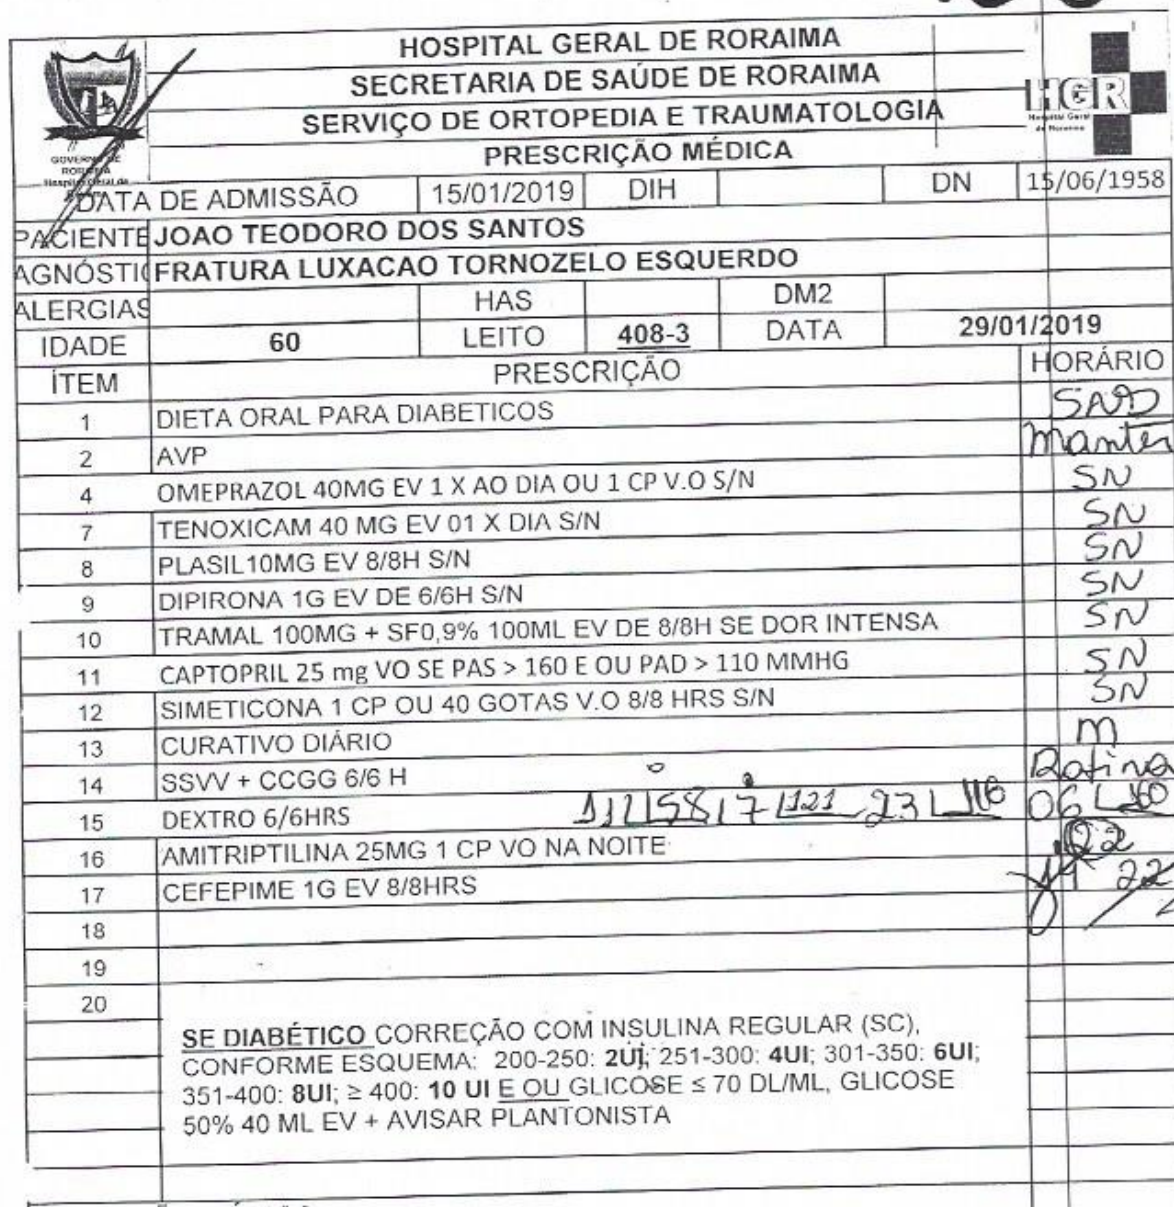 HOSPITAL GERAL DE RORAIMA
SECRETARIA DE SAÚDE DE RORAIMA
SERVIÇO DE ORTOPEDIA E TRAUMATOLOGIA
PRESCRIÇÃO MÉDICA
GOVERNO DE
RORAIMA
Hospital Geral de
HGR
Hospital Geral
de Roraima
DATA DE ADMISSÃO 15/01/2019 DIH DN 15/06/1958
PACIENTE JOAO TEODORO DOS SANTOS
AGNÓSTIC FRATURA LUXACAO TORNOZELO ESQUERDO
ALERGIAS HAS DM2
IDADE 60 LEITO 408-3 DATA 29/01/2019
ÍTEM PRESCRIÇÃO HORÁRIO
1 DIETA ORAL PARA DIABETICOS SND
2 AVP Manter
4 OMEPRAZOL 40MG EV 1 X AO DIA OU 1 CP V.O S/N SN
7 TENOXICAM 40 MG EV 01 X DIA S/N SN
8 PLASIL10MG EV 8/8H S/N SN
9 DIPIRONA 1G EV DE 6/6H S/N SN
10 TRAMAL 100MG + SF0,9% 100ML EV DE 8/8H SE DOR INTENSA SN
11 CAPTOPRIL 25 mg VO SE PAS > 160 E OU PAD > 110 MMHG SN
12 SIMETICONA 1 CP OU 40 GOTAS V.O 8/8 HRS S/N SN
13 CURATIVO DIÁRIO M
14 SSVV + CCGG 6/6 H Rotina
15 DEXTRO 6/6HRS 17 121 23 116 06 160
16 AMITRIPTILINA 25MG 1 CP VO NA NOITE 22
17 CEFEPIME 1G EV 8/8HRS 14 22
18
19
20
SE DIABÉTICO CORREÇÃO COM INSULINA REGULAR (SC),
CONFORME ESQUEMA: 200-250: 2UI; 251-300: 4UI; 301-350: 6UI;
351-400: 8UI; ≥ 400: 10 UI E OU GLICOSE ≤ 70 DL/ML, GLICOSE
50% 40 ML EV + AVISAR PLANTONISTA